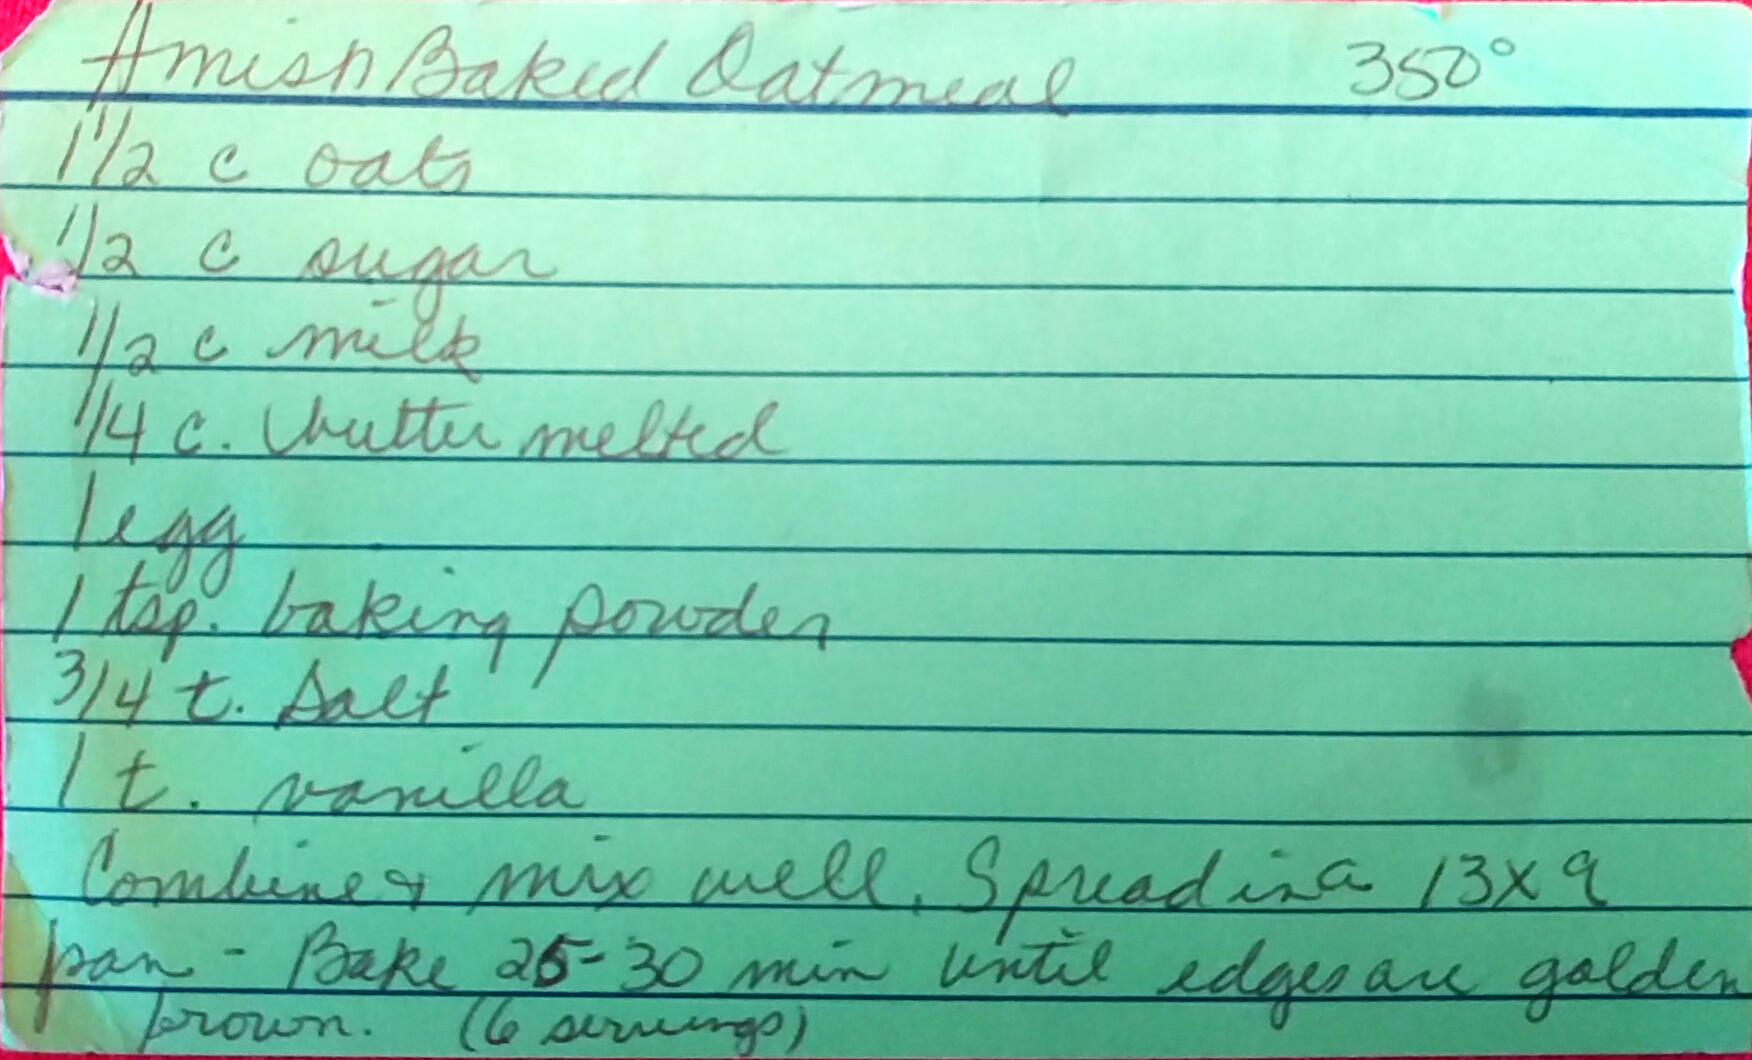 Amish Baked Oatmeal 350°
1 1/2 c oats
1/2 c sugar
1/2 c milk
1/4 c. butter melted
1 egg
1 tsp. baking powder
3/4 t. salt
1 t. vanilla
Combine & mix well. Spread in a 13x9
pan - Bake 25-30 min until edges are golden
brown. (6 servings)